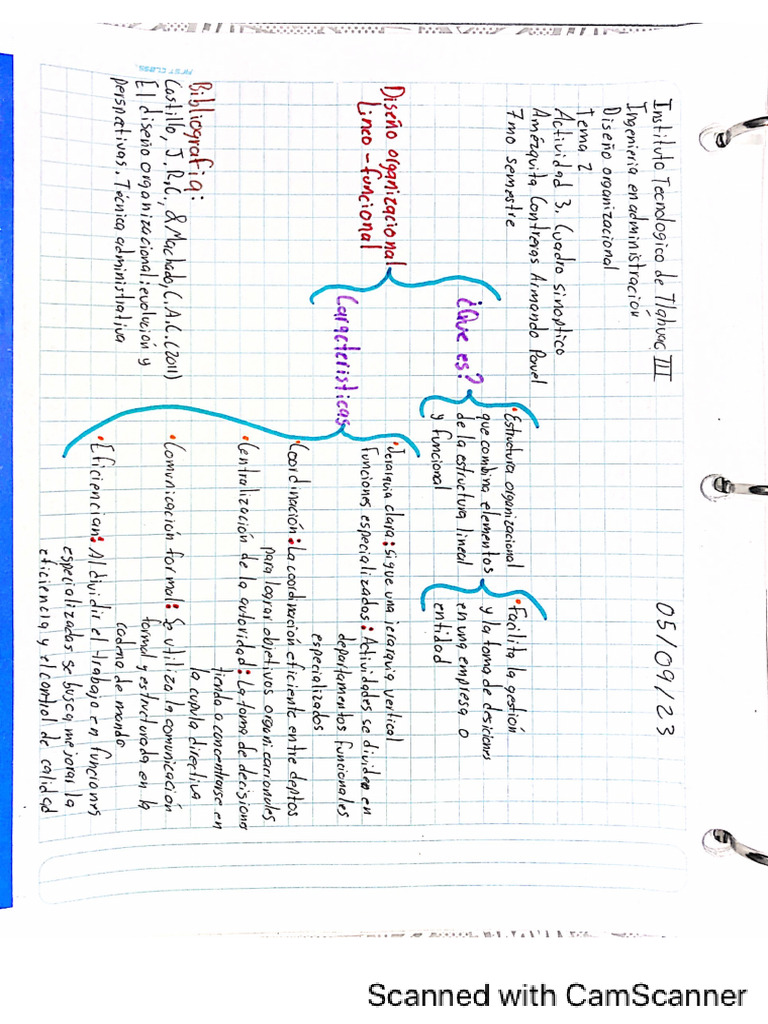 Instituto Tecnologico de Tlahuac III
Ingenieria en administración
Diseño organizacional
Tema 2
Actividad 3. Cuadro sinoptico
Amézquita Contreras Armando Pavel
7mo semestre
05/09/23
Diseño organizacional
Lineo-funcional
¿Que es?
•Estructura organizacional
que combina elementos
de la estructura lineal
y funcional
•Facilita la gestión
y la toma de desiciones
en una empresa o
entidad
Caracteristicas
•Jerarquia clara: sigue una jerarquia vertical
Funciones especializados: Actividades se dividen en
departamentos funcionales
especializados
•Coordinación: La coordinación eficiente entre deptos
para lograr objetivos organizacionales
•Centralización de la autoridad: La toma de decisiones
tiende a concentrarse en
la cupula directiva
•Comunicación formal: Se utiliza la comunicación
formal y estructurada en la
cadena de mando
•Eficiencian: Al dividir el trabajo en funciones
especializadas se busca mejorar la
eficiencia y el control de calidad
Bibliografia:
Castillo, J. R.C., & Machado, C. A.C. (2011)
El diseño organizacional: evolución y
perspectivas. Técnica administrativa
FIRST CLASS
Scanned with CamScanner